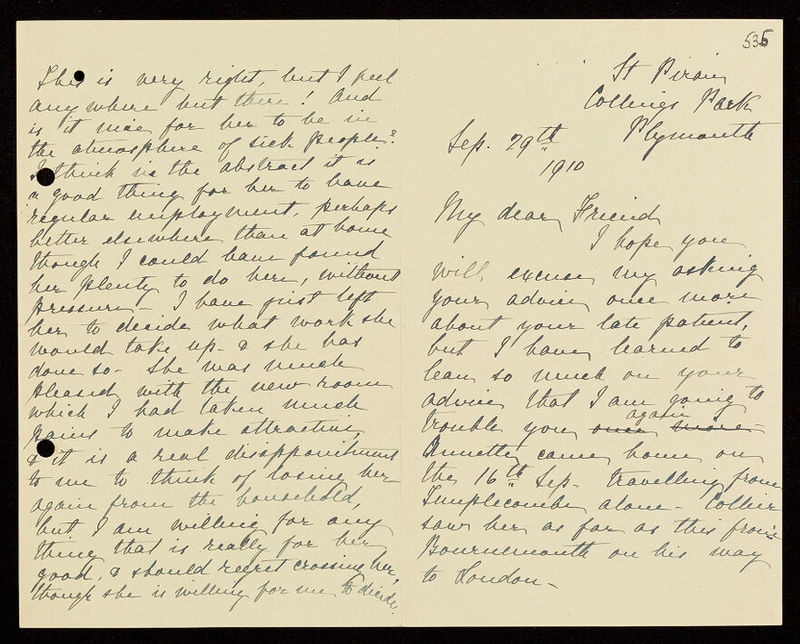 535
St Piran
Collings Park
Plymouth
Sep. 29th
1910
My dear Friend
I hope you
will excuse my asking
your advice once more
about your late patient,
but I have learned to
lean so much on your
advice that I am going to
trouble you once more again
Annette came home on
the 16th Sep. travelling from
Templecombe alone - Collier
saw her as far as this from
Bournemouth on his way
to London -
This is very right, but I feel
any where but there! And
is it nice for her to be in
the atmosphere of sick people?
I think in the abstract it is
a good thing for her to have
regular employment, perhaps
better elsewhere than at home
though I could have found
her plenty to do here, without
pressure - I have just left
her to decide what work she
would take up - & she has
done so - She was much
pleased with the new room
which I had taken much
pains to make attractive,
& it is a real disappointment
to me to think of losing her
again from the household,
but I am willing for any
thing that is really for her
good, & should regret crossing her,
though she is willing for me to decide.